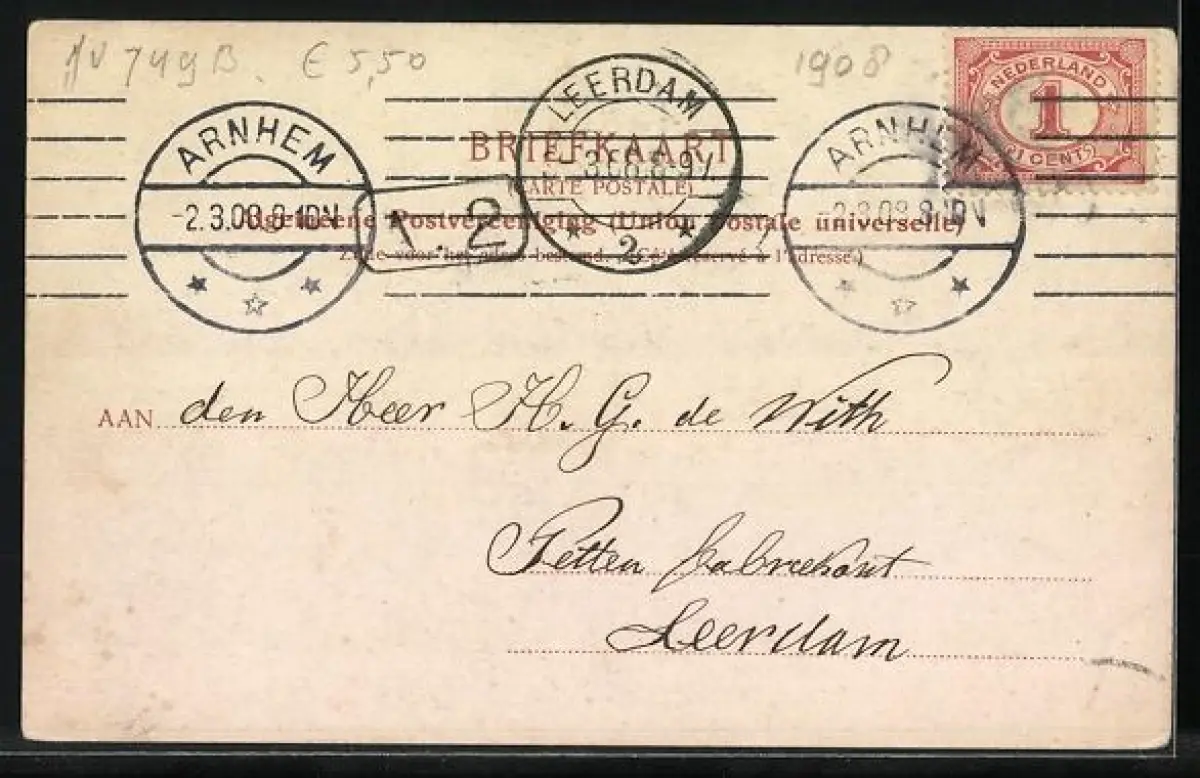 AV 749B. € 5,50 1908
NEDERLAND
1
1 CENT
LEERDAM
ARNHEM
ARNHEM
BRIEFKAART
-3.08.8-9V.
(CARTE POSTALE)
-2.3.08.8-1DN
1.2
-2.3.08.8-1DN
Algemeene Postvereeniging (Union Postale universelle)
2
Zijde voor het adres bestemd. (Côté réservé à l'adresse.)
AAN den Heer H. G. de With
fabriekant
Leerdam